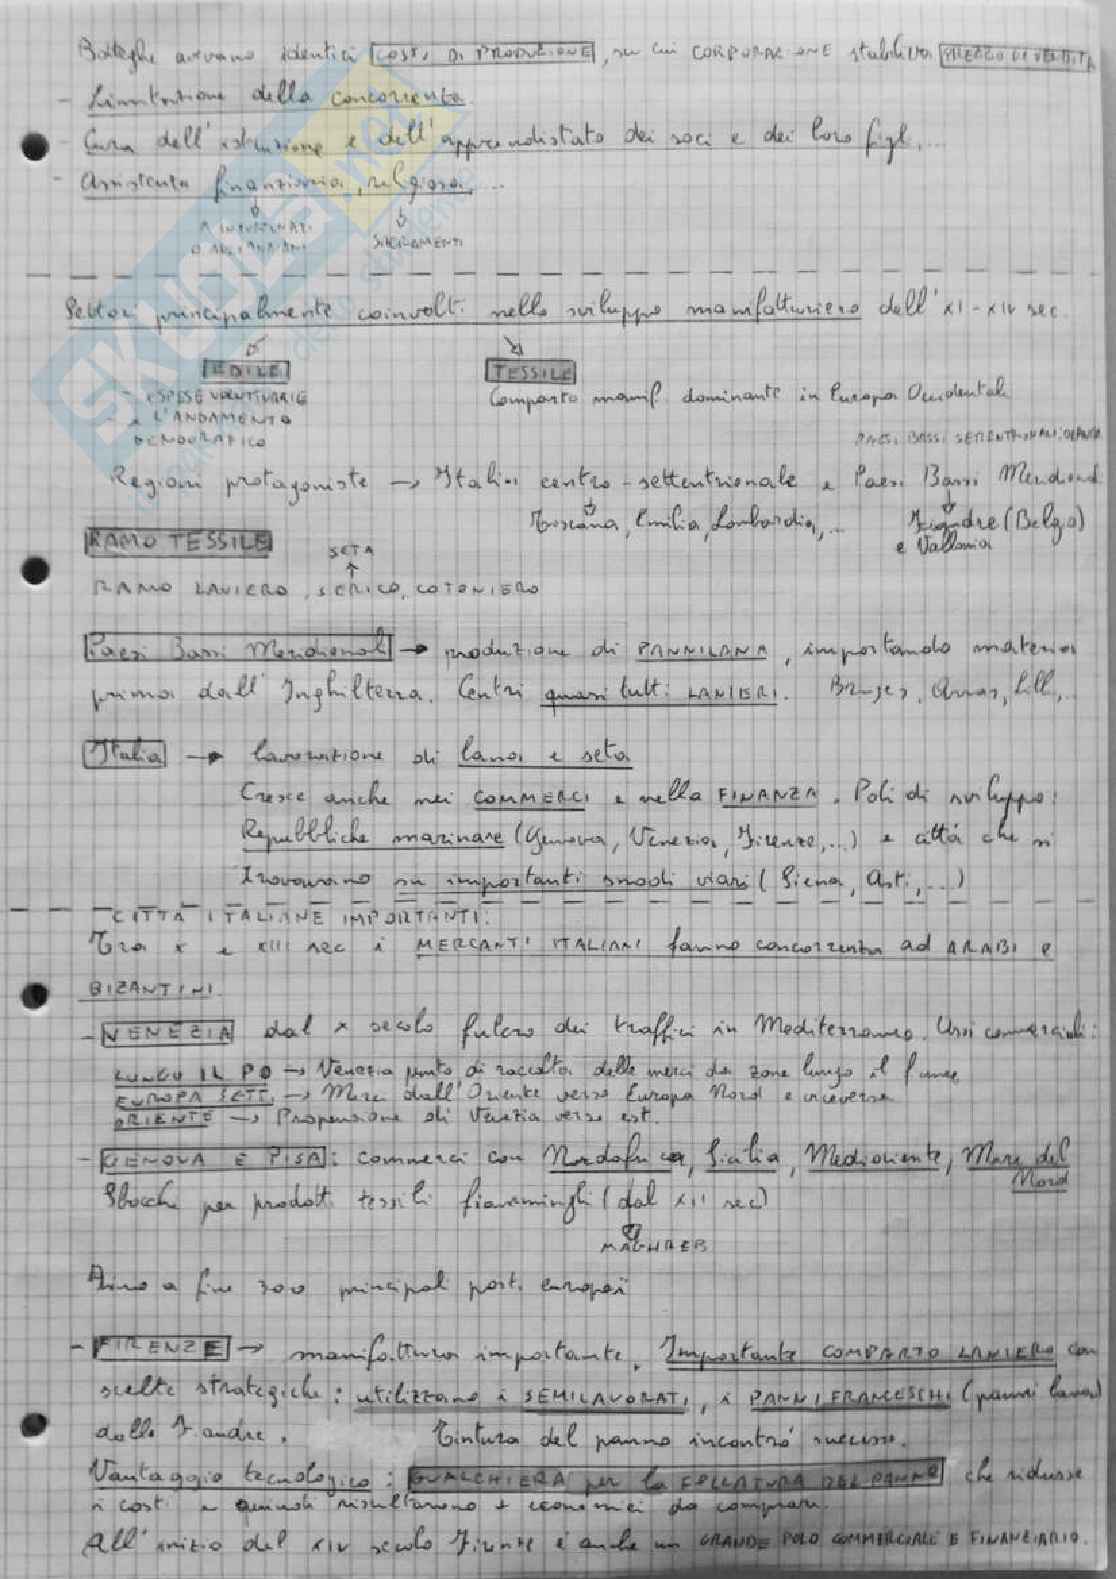 Botteghe avevano identici COSTI DI PRODUZIONE, su cui CORPORAZIONE stabiliva PREZZO DI VENDITA
- Limitazione della concorrenza
- Cura dell'istruzione e dell'apprendistato dei soci e dei loro figli...
- Assistenza finanziaria, religiosa, ...
SACRAMENTI
Settori principalmente coinvolti nello sviluppo manifatturiero dell'XI-XIV sec
EDILE TESSILE
SPESE VOLUTTUARIE Comparto manif. dominante in Europa Occidentale
L'ANDAMENTO
DEMOGRAFICO PAESI BASSI SETTENTRIONALI: OLANDA
Regioni protagoniste → Italia centro-settentrionale e Paesi Bassi Meridionali
Toscana, Emilia, Lombardia, ... Fiandre (Belgio)
e Vallonia
RAMO TESSILE
SETA
RAMO LANIERO, SERICO, COTONIERO
Paesi Bassi Meridionali → produzione di PANNILANA, importando materia
prima dall'Inghilterra. Centri quasi tutti LANIERI. Bruges, Arras, Lille, ..
Italia → lavorazione di lana e seta
Cresce anche nei COMMERCI e nella FINANZA. Poli di sviluppo:
Repubbliche marinare (Genova, Venezia, Firenze, ...) e città che si
trovavano su importanti snodi viari (Siena, Asti, ...)
CITTÀ ITALIANE IMPORTANTI:
Tra X e XIII sec i MERCANTI ITALIANI fanno concorrenza ad ARABI e
BIZANTINI.
- VENEZIA dal X secolo fulcro dei traffici in Mediterraneo. Assi commerciali:
LUNGO IL PO → Venezia punto di raccolta delle merci da zone lungo il fiume
EUROPA SETT. → Merci dall'Oriente verso Europa Nord e viceversa
ORIENTE → Propensione di Venezia verso est.
- GENOVA E PISA: commerci con Nordafrica, Sicilia, Medioriente, Mare del
Nord
Sbocchi per prodotti tessili fiamminghi (dal XII sec)
MAGHREB
Fino a fine 300 principali porti europei
- FIRENZE → manifattura importante. Importante COMPARTO LANIERO con
scelte strategiche: utilizzano i SEMILAVORATI, i PANNI FRANCESCHI (panni lana)
dalle Fiandre. Tintura del panno incontrò successo.
Vantaggio tecnologico: GUALCHIERA per la FOLLATURA DEL PANNO che ridusse
i costi e quindi risultarono + economici da comprare.
All'inizio del XIV secolo Firenze è anche un GRANDE POLO COMMERCIALE E FINANZIARIO.
SKUOLA.net